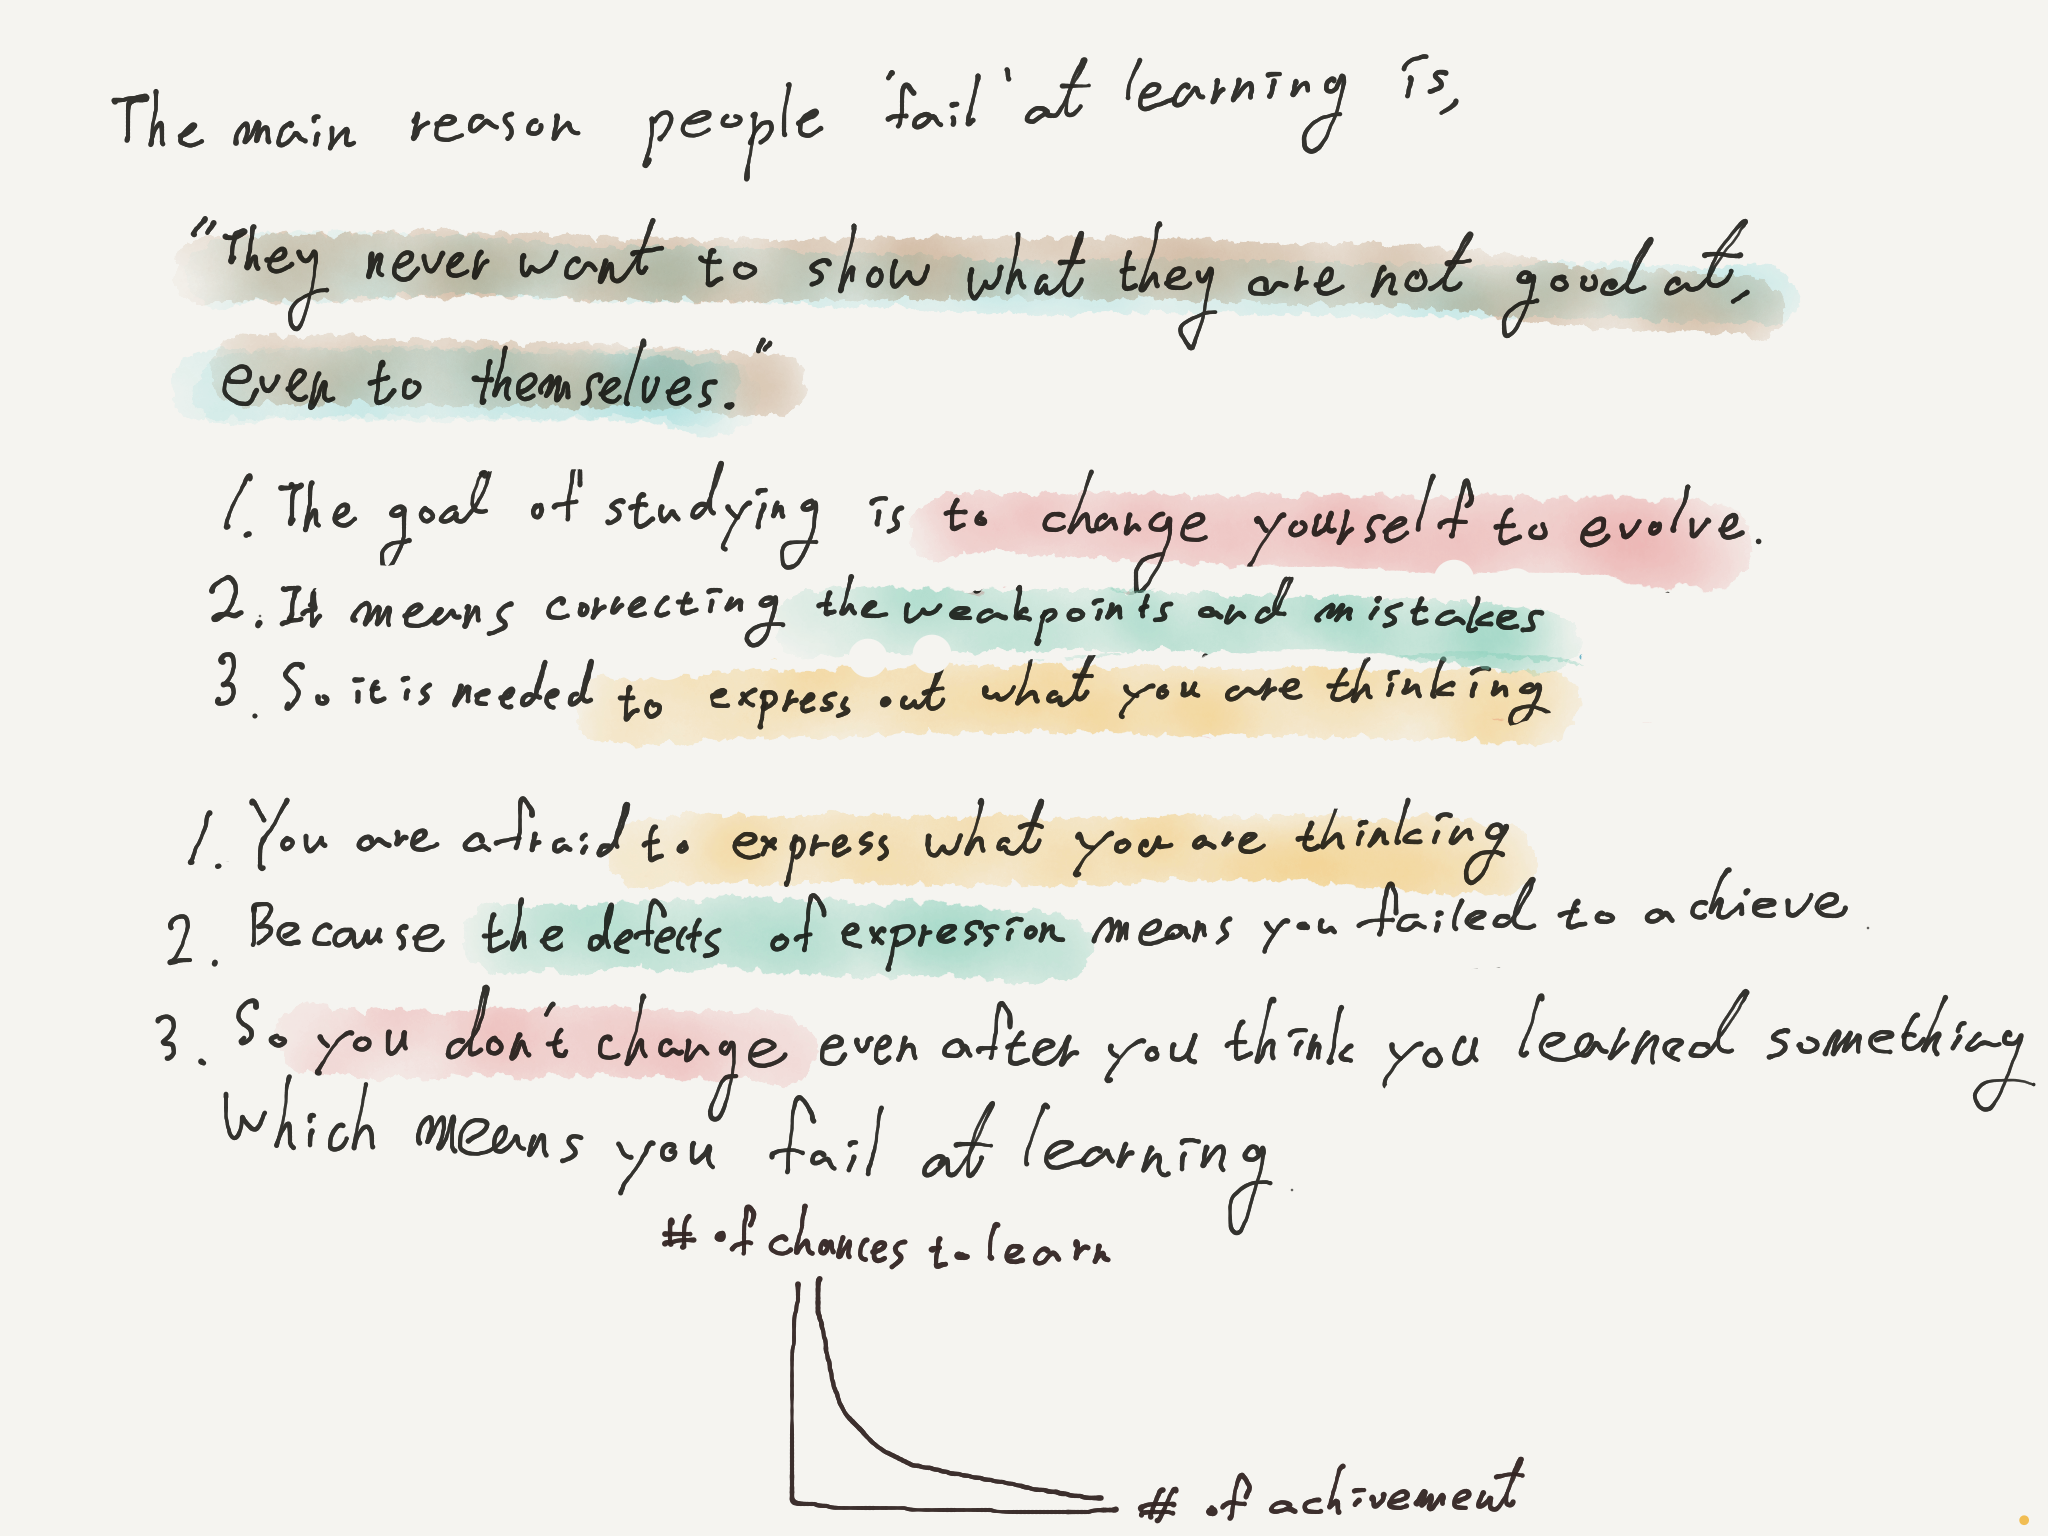 The main reason people 'fail' at learning is,
"They never want to show what they are not good at,
even to themselves."
1. The goal of studying is to change yourself to evolve.
2. It means correcting the weakpoints and mistakes
3. So it is needed to express out what you are thinking
1. You are afraid to express what you are thinking
2. Because the defects of expression means you failed to achieve.
3. So you don't change even after you think you learned something
Which means you fail at learning.
# of chances to learn
# of achivement